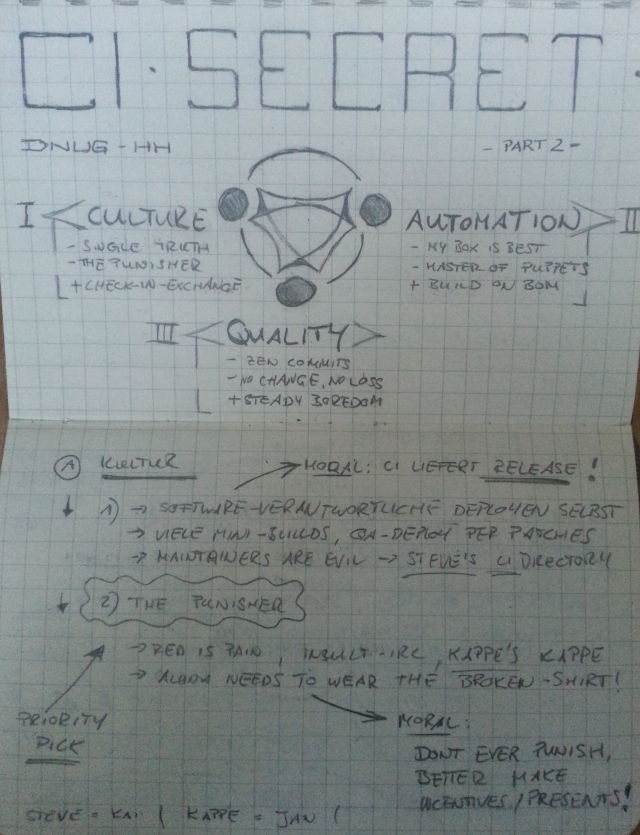 CI · SECRET ·
DNUG - HH
- PART 2 -
I < CULTURE
- SINGLE TRUTH
- THE PUNISHER
+ CHECK-IN-EXCHANGE
AUTOMATION > II
- MY BOX IS BEST
- MASTER OF PUPPETS
+ BUILD ON BOM
III < QUALITY >
- ZEN COMMITS
- NO CHANGE, NO LOSS
+ STEADY BOREDOM
A KULTUR
→ MORAL: CI LIEFERT RELEASE!
↓ 1) → SOFTWARE-VERANTWORTLICHE DEPLOYEN SELBST
→ VIELE MINI-BUILDS, QA-DEPLOY PER PATCHES
→ MAINTAINERS ARE EVIL → STEVE'S CI DIRECTORY
↓ 2) THE PUNISHER
→ RED IS PAIN, INSULT-IRC, KAPPE'S KAPPE
→ NEEDS TO WEAR THE BROKEN-SHIRT!
PRIORITY
PICK
MORAL:
DONT EVER PUNISH,
BETTER MAKE
INCENTIVES / PRESENTS!
STEVE = KAI ( KAPPE = JAN (